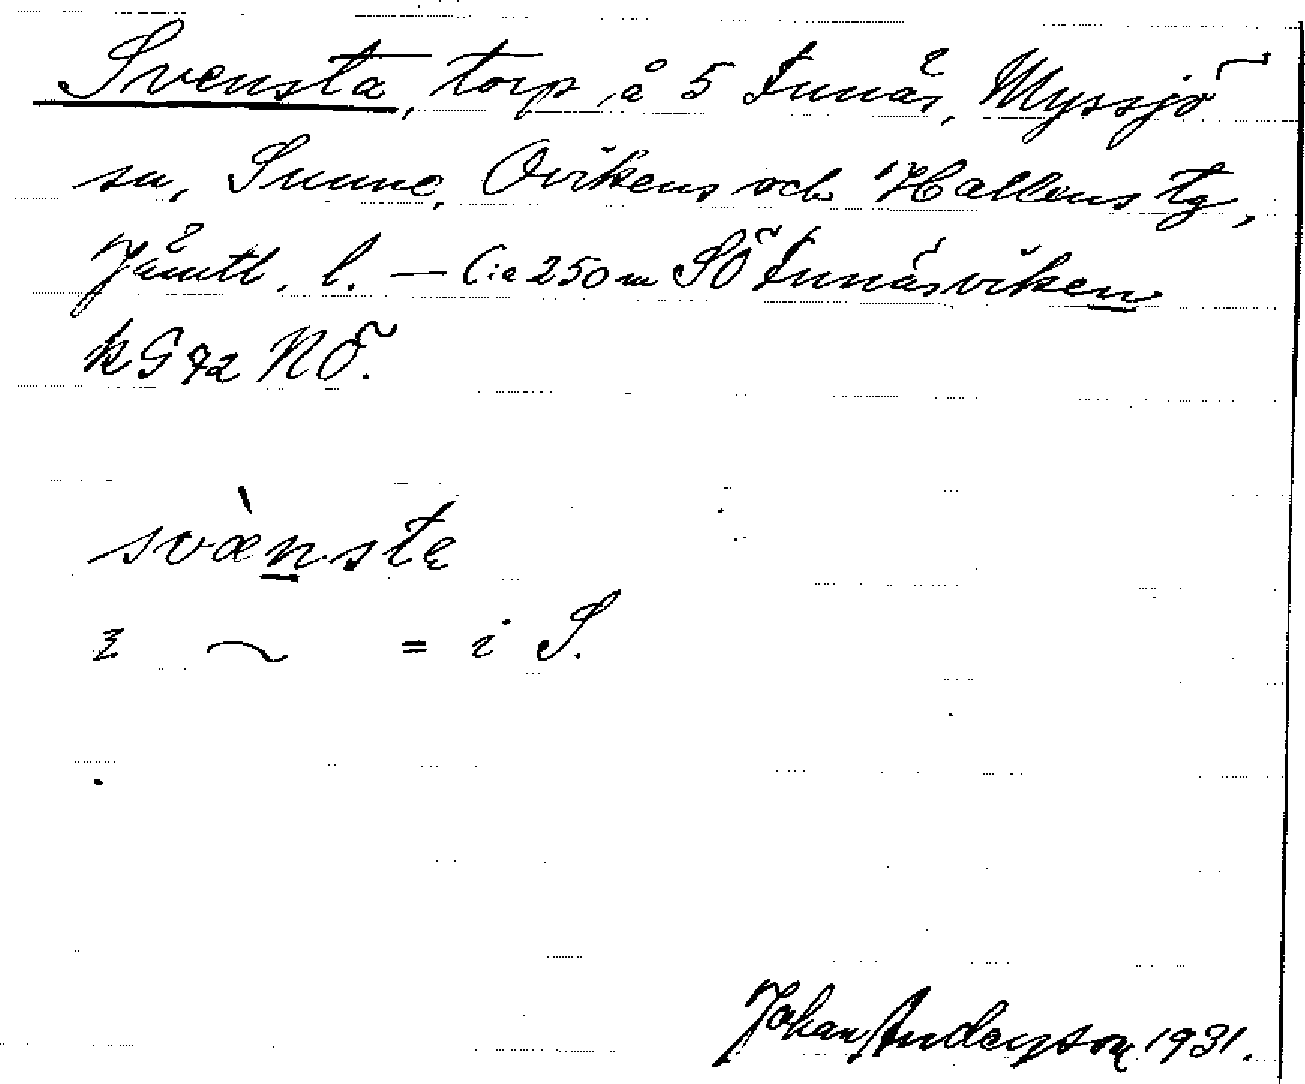 Svensta, torp, å 5 Funäs, Myssjö
sn, Sunne, Ovikens och Hallens tg,
Jämtl. l. — Cia 250 m SÖ Funäsviken
k G 72 NÖ.
svæ̀nsta
i ~ = i S.
Johan Anderson 1931.